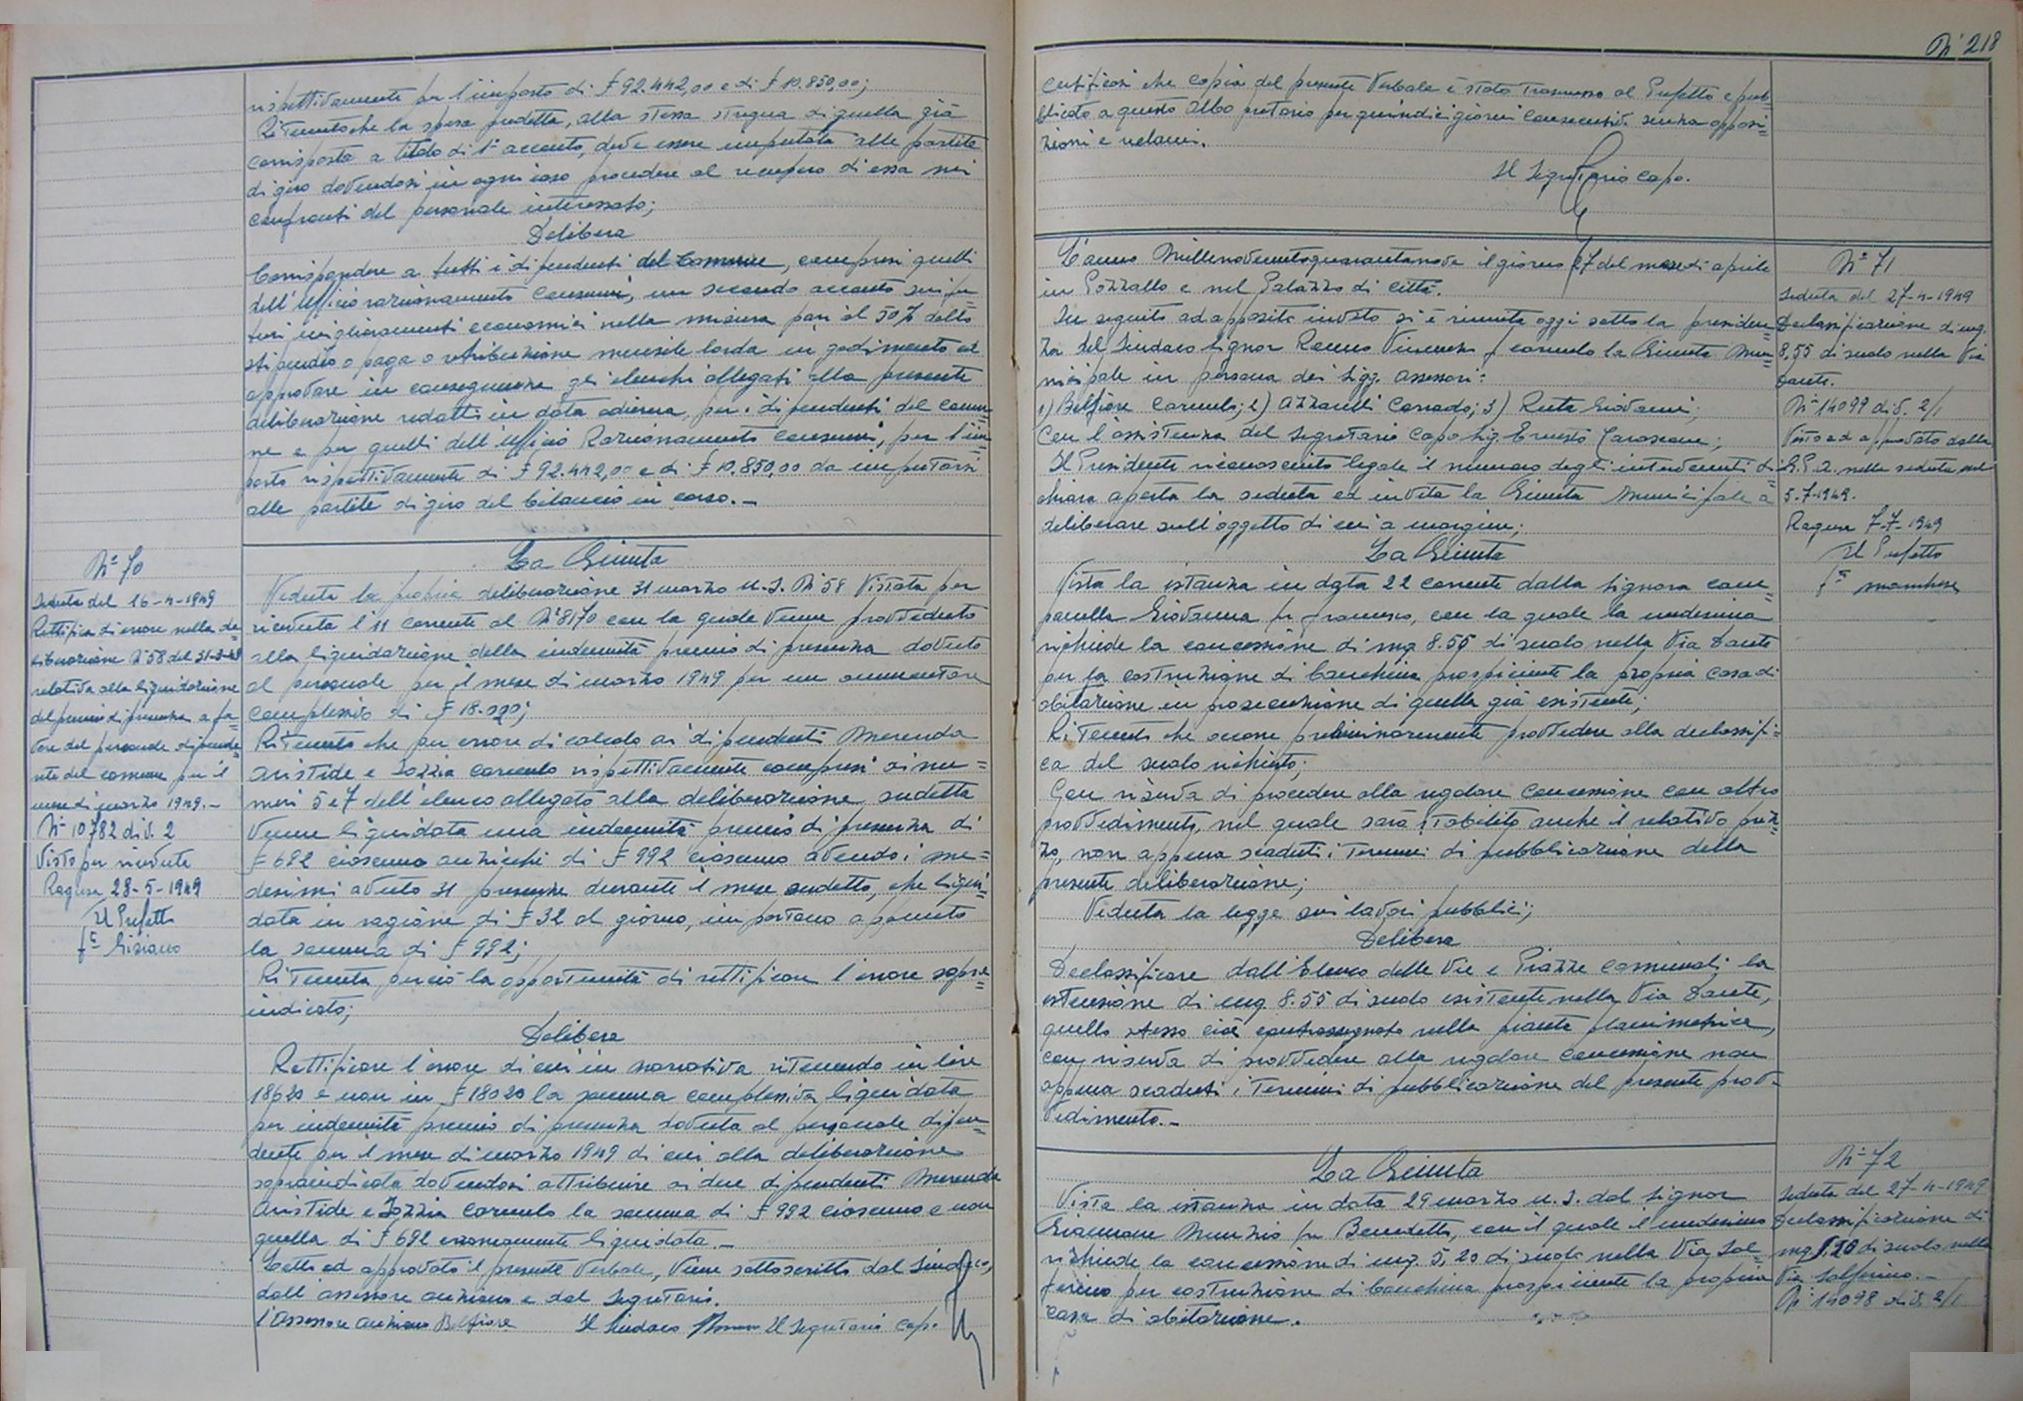 rispettivamente per l'importo di £ 92.442,00 e di £ 10.850,00;
Ritenuto che la spesa predetta, alla stessa stregua di quella già
corrisposta a titolo di 1° acconto, deve essere imputata alle partite
di giro dovendosi in ogni caso procedere al recupero di essa nei
confronti del personale interessato;
Delibera
Corrispondere a tutti i dipendenti del Comune, compresi quelli
dell'Ufficio razionamento consumi, un secondo acconto sui fu=
turi miglioramenti economici nella misura pari al 50% dello
stipendio o paga o retribuzione mensile lorda in godimento ed
approvare in conseguenza gli elenchi allegati alla presente
deliberazione redatti in data odierna, per i dipendenti del comu=
ne e per quelli dell'Ufficio Razionamento consumi, per l'im=
porto rispettivamente di £ 92.442,00 e di £ 10.850,00 da imputarsi
alle partite di giro del bilancio in corso. _
N° 70
Seduta del 16-4-1949
Rettifica di errore nella de=
liberazione N° 58 del 31-3-49
relativa alla liquidazione
del premio di presenza a fa=
vore del personale dipende=
nte del comune per il
mese di marzo 1949. _
N° 10782 div. 2
Visto per ricevuta
Ragusa 28-5-1949
Il Prefetto
f°
La Giunta
Veduta la propria deliberazione 31 marzo u.s. N° 58 Vistata per
ricevuta l'11 corrente al N° 8170 con la quale venne provveduto
alla liquidazione della indennità premio di presenza dovuto
al personale per il mese di marzo 1949 per un ammontare
complessivo di £ 18.020;
Ritenuto che per errore di calcolo ai dipendenti Merenda
Aristide e Iozzia Carmelo rispettivamente compresi ai nu=
meri 5 e 7 dell'elenco allegato alla deliberazione sudetta
venne liquidata una indennità premio di presenza di
£ 692 ciascuno anzicché di £ 992 ciascuno avendo i me=
desimi avuto 31 presenze durante il mese sudetto, che liqui=
data in ragione di £ 32 al giorno, importano appunto
la somma di £ 992;
Ritenuta perciò la opportunità di rettificare l'errore sopra=
indicato;
Delibera
Rettificare l'errore di cui in narrativa ritenendo in lire
18620 e non in £ 18020 la somma complessiva liquidata
per indennità premio di presenza dovuta al personale dipen=
dente per il mese di marzo 1949 di cui alla deliberazione
sopraindicata dovendosi attribuire ai due dipendenti Merenda
Aristide e Iozzia Carmelo la somma di £ 992 ciascuno e non
quella di £ 692 erroneamente liquidata. _
Letto ed approvato il presente Verbale, viene sottoscritto dal Sindaco,
dall'assessore anziano e dal Segretario.
L'Assessore anziano Belfiore Il Sindaco Il Segretario Capo.
N° 218
certificasi che copia del presente Verbale è stata trasmessa al Prefetto e pub=
blicato a questo albo pretorio per quindici giorni consecutivi senza opposi=
zioni e reclami.
Il Segretario Capo.
L'anno Millenovecentoquarantanove il giorno 27 del mese di aprile
in Pozzallo e nel Palazzo di Città.
In seguito ad apposito invito si è riunita oggi sotto la presiden=
za del Sindaco Signor Vincenzo fu Carmelo la Giunta Mu=
nicipale in persona dei Sigg. assessori:
1) Belfiore Carmelo; 2) Azzarelli Corrado; 3) Ruta Giovanni;
Con l'assistenza del Segretario Capo Sig. Ernesto
Il Presidente riconosciuto legale il numero degli intervenuti di=
chiara aperta la seduta ed invita la Giunta Municipale a
deliberare sull'oggetto di cui a margine;
N° 71
Seduta del 27-4-1949
Declassificazione di mq.
8.55 di suolo nella Via
Dante.
N° 14099 div. 2/1
Visto ed approvato dalla
G.P.A. nella seduta del
5.7.1949.
Ragusa 7-7-1949
Il Prefetto
f°
La Giunta
Vista la istanza in data 22 corrente dalla Signora Cam=
panella Giovanna fu Francesco, con la quale la medesima
richiede la concessione di mq 8.55 di suolo nella Via Dante
per la costruzione di banchina prospiciente la propria casa di
abitazione in prosecuzione di quella già esistente;
Ritenuto che occorre preliminarmente provvedere alla declassifi=
ca del suolo richiesto;
Con riserva di procedere alla regolare concessione con altro
provvedimento, nel quale sarà stabilito anche il relativo prez=
zo, non appena scaduti i termini di pubblicazione della
presente deliberazione;
Veduta la legge sui lavori pubblici;
Delibera
Declassificare dall'Elenco delle Vie e Piazze comunali la
estensione di mq 8.55 di suolo esistente nella Via Dante,
quello stesso cioè contrassegnato nella pianta planimetrica,
con riserva di provvedere alla regolare concessione non
appena scaduti i termini di pubblicazione del presente prov=
vedimento. _
La Giunta
Vista la istanza in data 29 marzo u.s. del Signor
Giannone Nunzio fu Benedetto, con il quale il medesimo
richiede la concessione di mq. 5,20 di suolo nella Via Sol=
ferino per costruzione di banchina prospiciente la propria
casa di abitazione.
N° 72
Seduta del 27-4-1949
Declassificazione di
mq. 5.20 di suolo nella
Via Solferino. _
N° 14098 div. 2/1